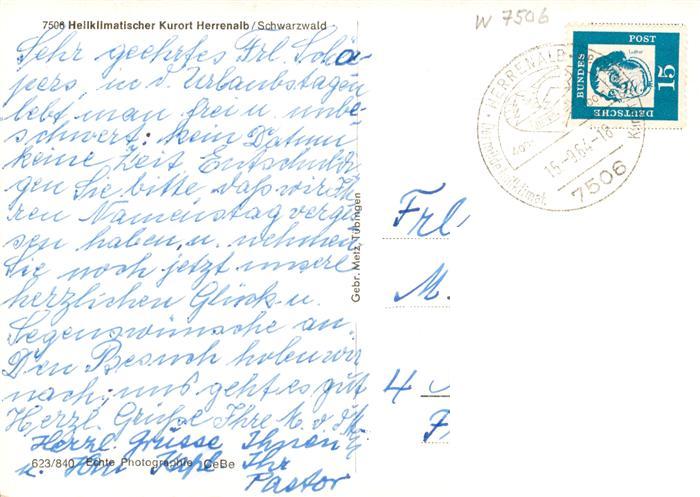 7506 Heilklimatischer Kurort Herrenalb / Schwarzwald
W 7506
Sehr geehrtes Frl. Schä-
pers, in d. Urlaubstagen
lebt man frei u. unbe-
schwert: kein Datum
keine Zeit Entschuldi-
gen Sie bitte, daß wir Ih-
ren Namenstag verges-
sen haben, u. nehmen
Sie noch jetzt unsere
herzlichen Glück- u.
Segenswünsche an.
Den Besuch holen wir
nach, uns geht es gut
Herzl. Grüße Ihre
Herzl. Grüsse Ihnen
u. Ihr
Pastor
623/840 Echte Photographie CeBe
Gebr. Metz, Tübingen
DEUTSCHE
BUNDES
POST
15
Luther
HERRENALB
15.-9.64-18
7506
Frl
M.
4
F